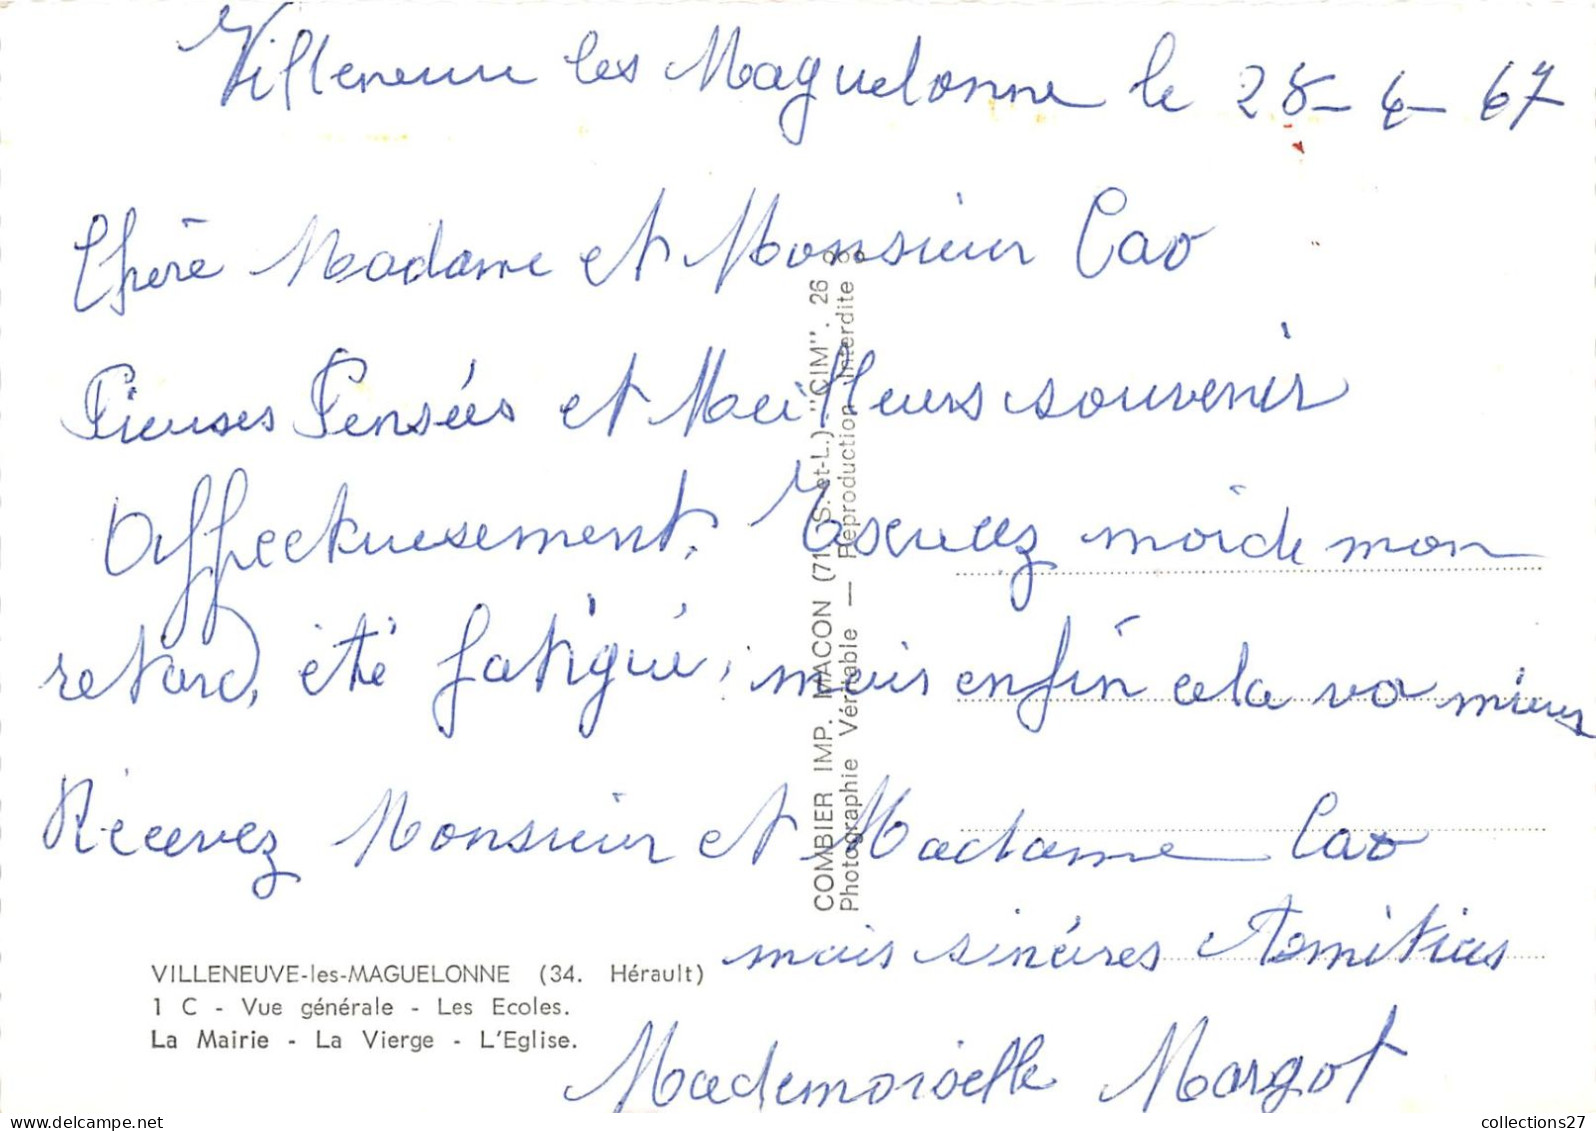 Villeneuve les Maguelonne le 28-4-67
Chère Madame et Monsieur Cao
Pieuses Pensées et Meilleurs souvenir
Affectueusement. Excusez moi de mon
retard, été fatigué, mais enfin cela va mieux
Recevez Monsieur et Madame Cao
mais sincères Amitiés
Mademoiselle Margot
COMBIER IMP. MACON (71 S.-et-L.) "CIM". 26
Photographie Véritable — Reproduction Interdite
VILLENEUVE-les-MAGUELONNE (34. Hérault)
1 C - Vue générale - Les Ecoles.
La Mairie - La Vierge - L'Eglise.
collections27